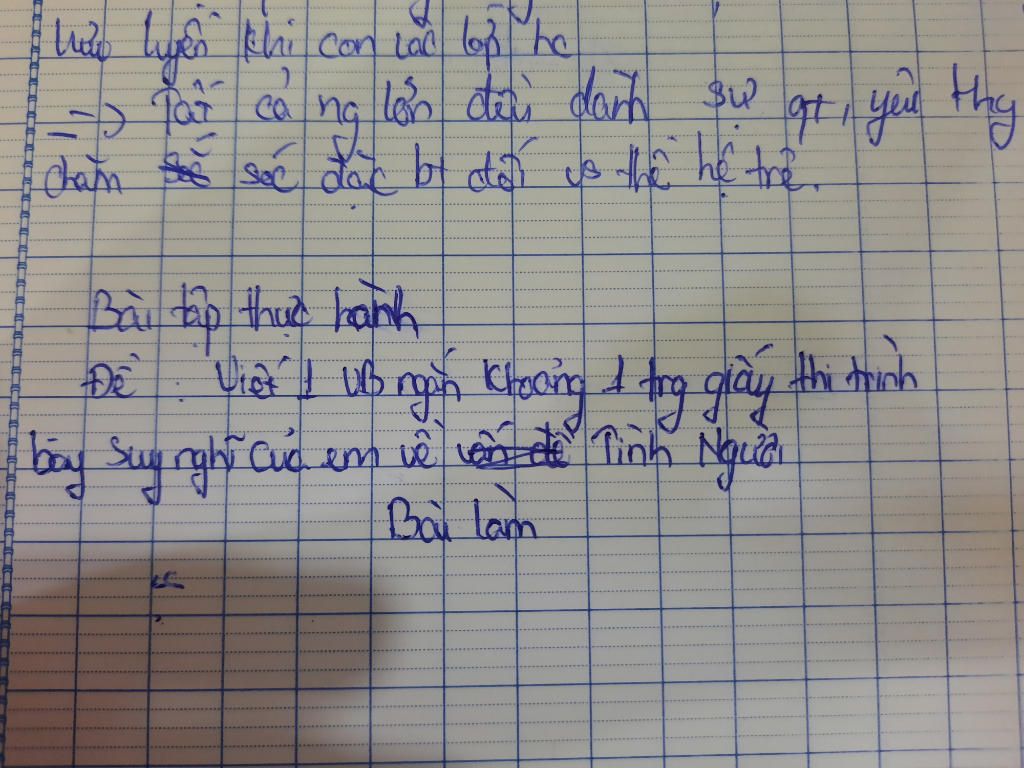 luyện khi con các lớp hc
=> Tất cả ng lớn đều dành sự qt, yêu thg
chăm sóc đặc bt đối vs thế hệ trẻ.
Bài tập thực hành
Đề : Viết 1 VB ngắn khoảng 1 trg giấy thi trình
bày suy nghĩ của em về Tình Người
Bài làm